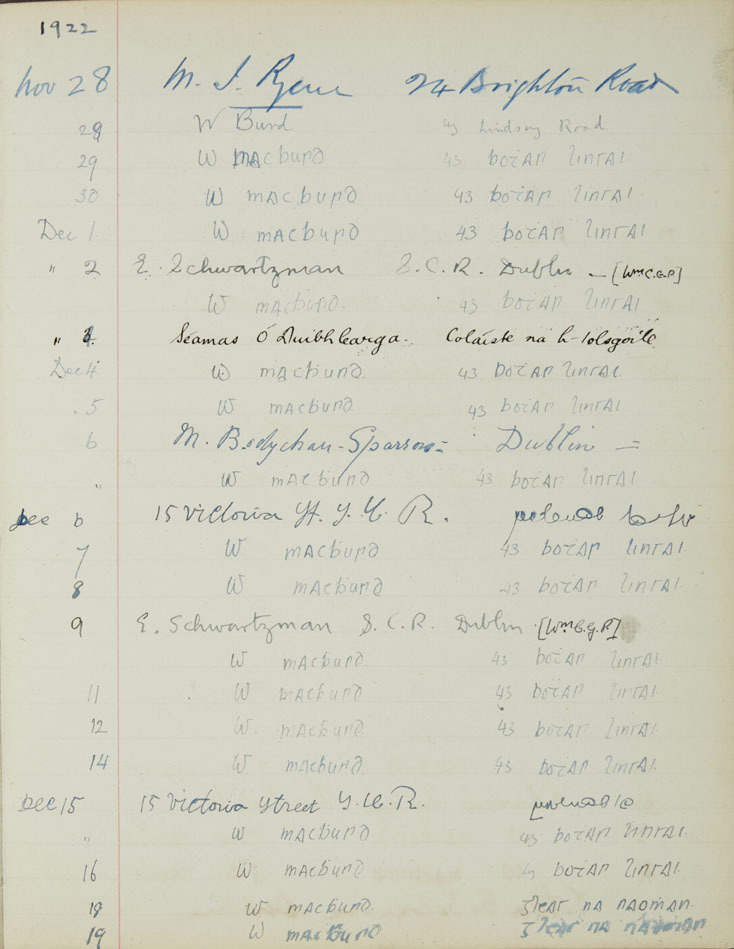 1922
Nov 28 M. J. Ryan 24 Brighton Road
29 W Burd 43 Lindsay Road
29 W macburd 43 botar linrai
30 W macburd 43 botar linrai
Dec 1 W macburd 43 botar linrai
" 2 E. Schwartzman S.C.R. Dublin — [Wm C.G.P]
W macburd. 43 botar linrai
" 4. Séamas Ó Duibhlearga. Coláiste na h-Iolsgoile
Dec 4. W macburd. 43 botar linrai.
5 W macburd. 43 botar linrai
6 M. Bodychan-Sparrow= Dublin =
" W macburd 43 botar linrai
Dec 6 15 Victoria St. S. C. R.
7 W macburd 43 botar linrai
8 W macburd 43 botar linrai
9 E. Schwartzman S.C.R. Dublin. [Wm C.G.P]
W macburd. 43 botar linrai
11 W macburd. 43 botar linrai
12 W. macburd. 43 botar linrai
14 W macburd. 43 botar linrai
Dec 15 15 Victoria Street S.C.R.
" W macburd 43 botar linrai.
16 W macburd. botar linrai
18 W macburd. na naoman.
19 W macburd na naoman